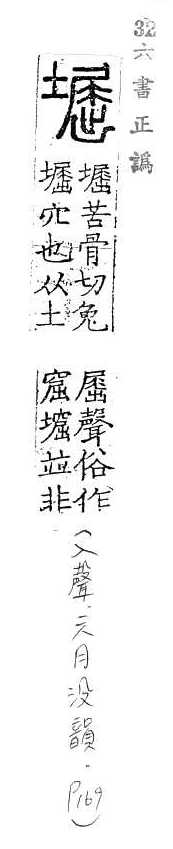 32六書正譌
𡑣苦骨切兔
𡑣穴也从土
𡲬聲俗作
窟堀竝非
(入聲.六月没韻.P.169)